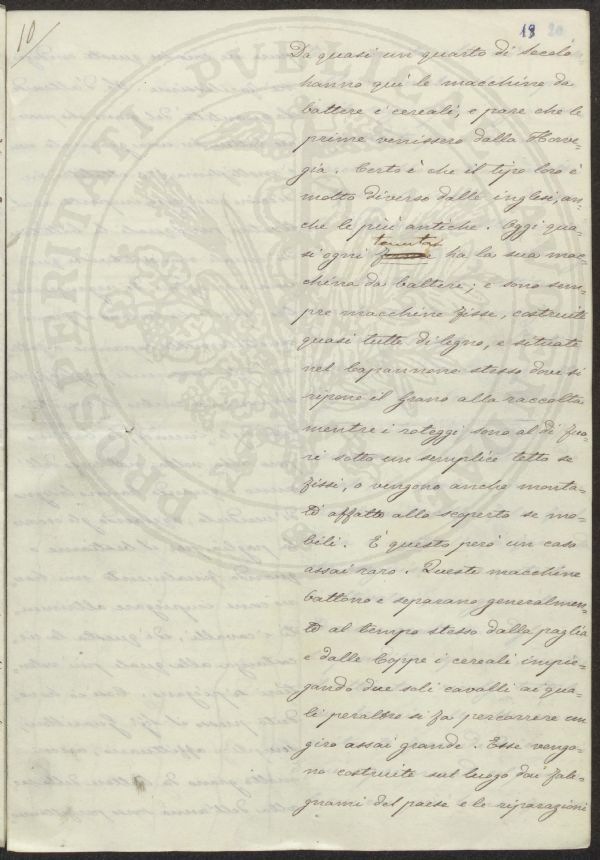 10
19 20
Da quasi un quarto di secolo
hanno qui le macchine da
battere i cereali, e pare che le
prime venissero dalla Norve-
gia. Certo è che il tipo loro è
molto diverso dalle inglesi, an-
che le più antiche. Oggi qua-
si ogni tenuta ha la sua mac-
china da battere; e sono sem-
pre macchine fisse, costruite
quasi tutte di legno, e situate
nel Capannone stesso dove si
ripone il grano alla raccolta
mentre i roteggi sono al di fuo-
ri sotto un semplice tetto se
fissi, o vengono anche monta-
ti affatto allo scoperto se mo-
bili. È questo però un caso
assai raro. Queste macchine
battono e separano generalmen-
te al tempo stesso dalla paglia
e dalle loppe i cereali impie-
gando due soli cavalli ai qua-
li peraltro si fa percorrere un
giro assai grande. Esse vengo-
no costruite sul luogo dai fale-
gnami del paese e le riparazioni
PROSPERITATI PUBLICAE